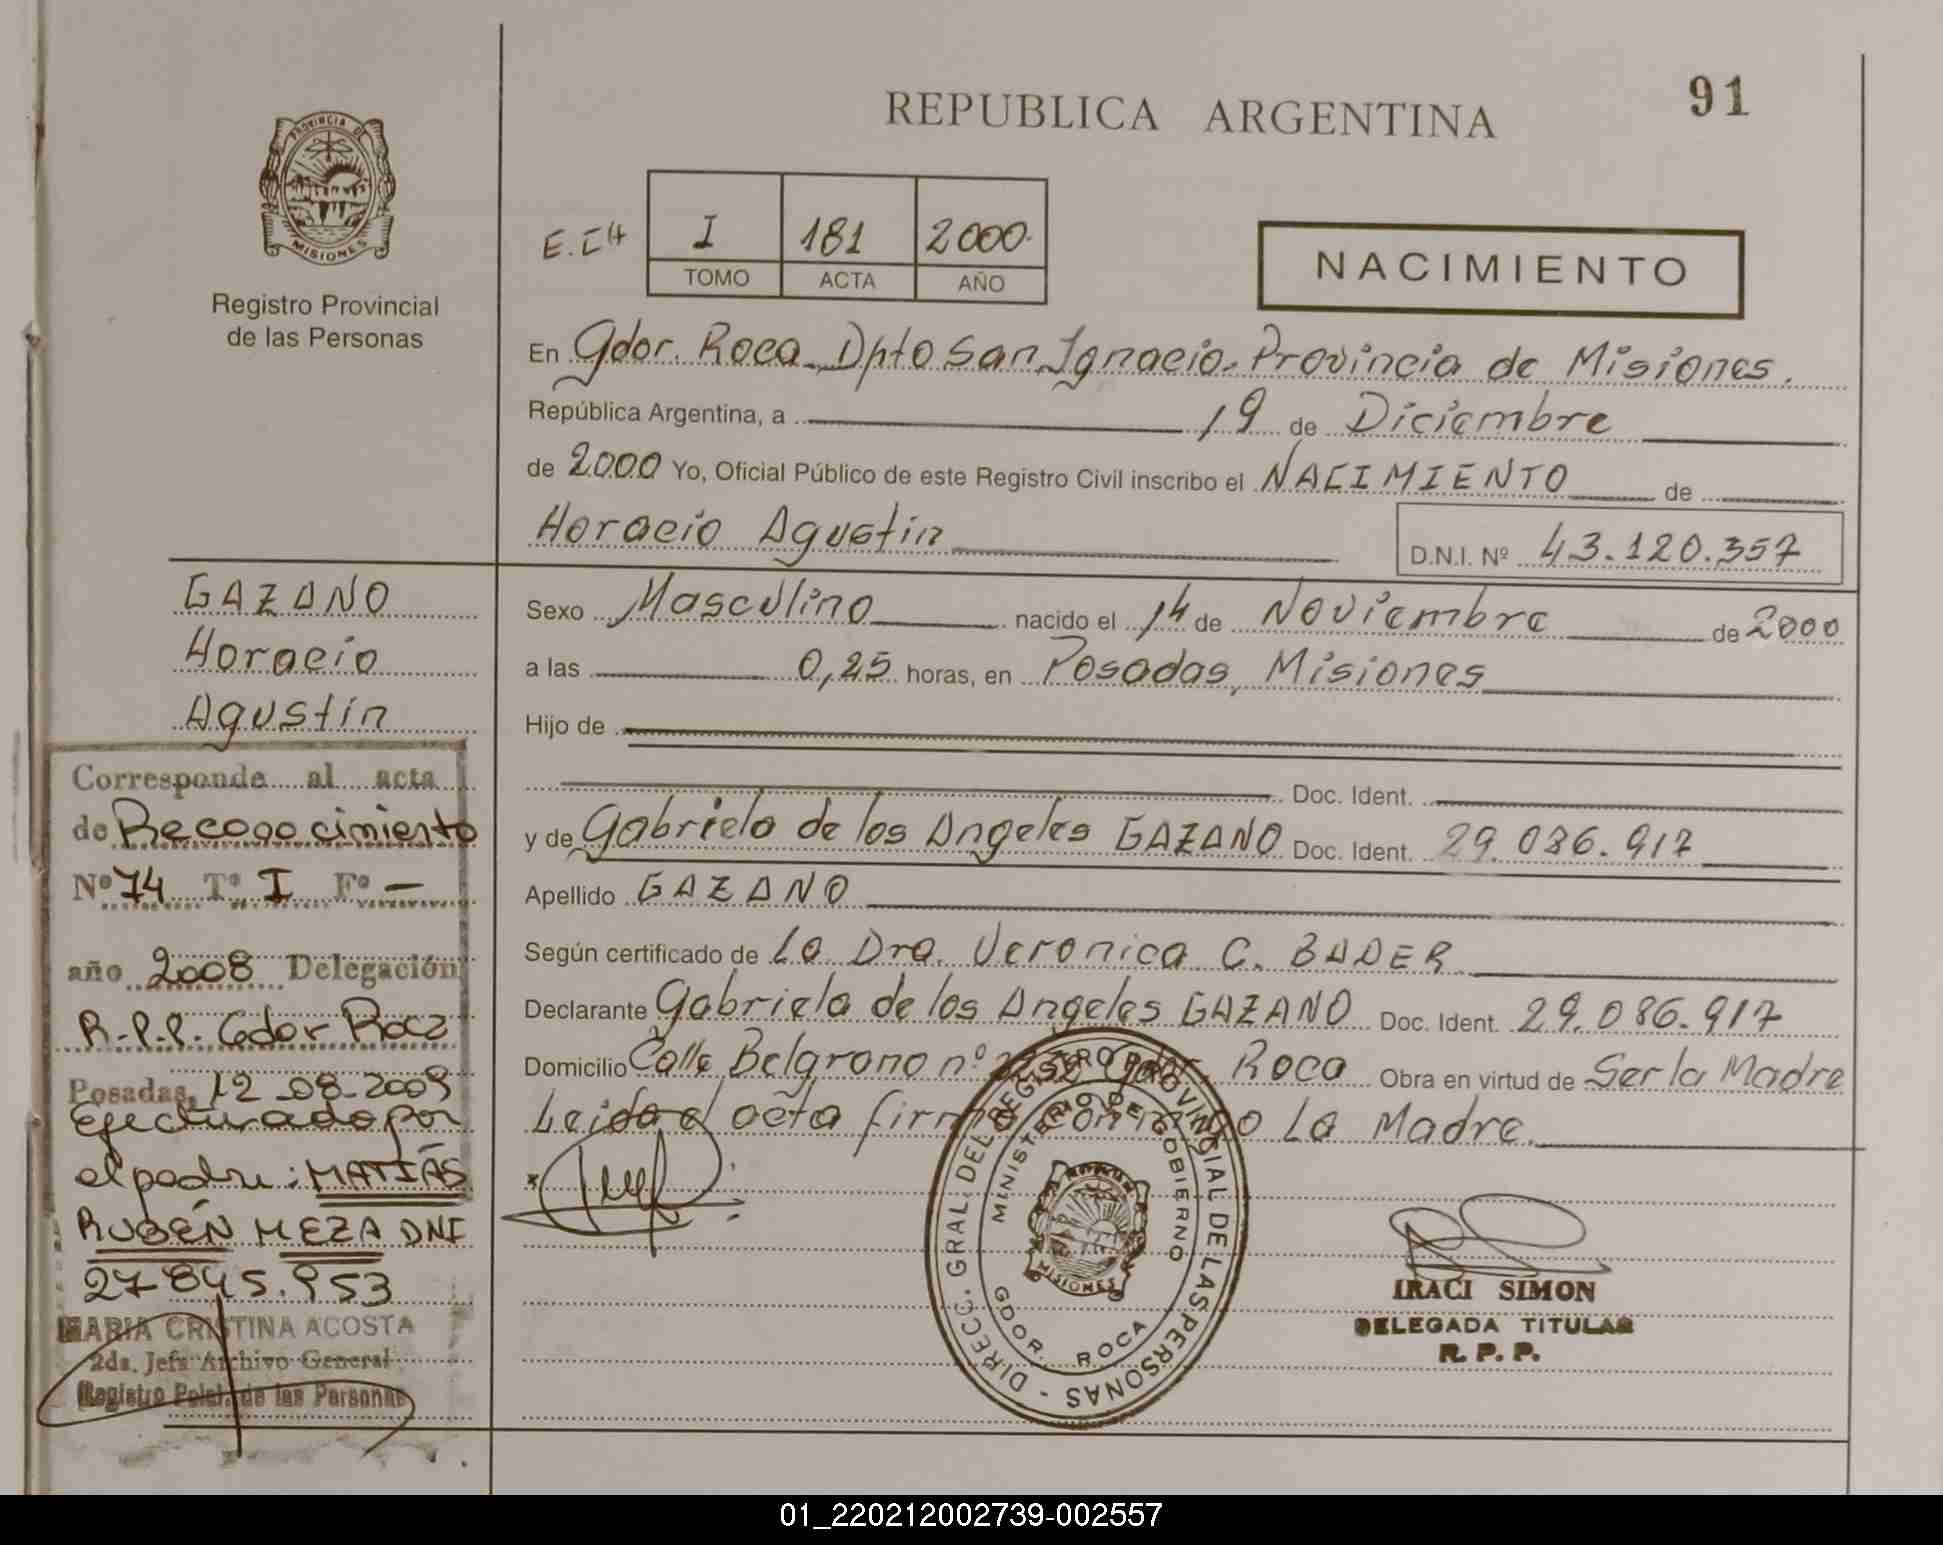 REPUBLICA ARGENTINA
91
PROVINCIA DE
MISIONES
Registro Provincial
de las Personas
I 181 2000
TOMO ACTA AÑO
NACIMIENTO
En Gdor. Roca Dpto San Ignacio. Provincia de Misiones.
República Argentina, a 19 de Diciembre
de 2000 Yo, Oficial Público de este Registro Civil inscribo el NACIMIENTO de
Horacio Agustin D.N.I. Nº 43.120.357
GAZANO
Horacio
Agustín
Sexo Masculino nacido el 14 de Noviembre de 2000
a las 0,25 horas, en Posadas, Misiones
Hijo de
Doc. Ident.
y de Gabriela de los Angeles GAZANO Doc. Ident. 29.086.917
Apellido GAZANO
Según certificado de La Dra. Veronica C. BADER
Declarante Gabriela de los Angeles GAZANO Doc. Ident. 29.086.917
Domicilio Calle Belgrano nº Roca Obra en virtud de Ser la Madre
Leida el acta La Madre.
Corresponde al acta
de Reconocimiento
Nº 74 Tº I Fº –
año 2008 Delegación
R.P.P. Gdor Roca
Posadas, 12-08-2009
Efectuado por
el padre: MATÍAS
RUBÉN MEZA DNI
27.845.953
MARIA CRISTINA ACOSTA
2da. Jefa Archivo General
Registro Pcial. de las Personas
DIRECC. GRAL. DEL REGISTRO PROVINCIAL DE LAS PERSONAS -
MINISTERIO DE GOBIERNO
MISIONES
GDOR. ROCA
IRACI SIMON
DELEGADA TITULAR
R. P. P.
01_220212002739-002557